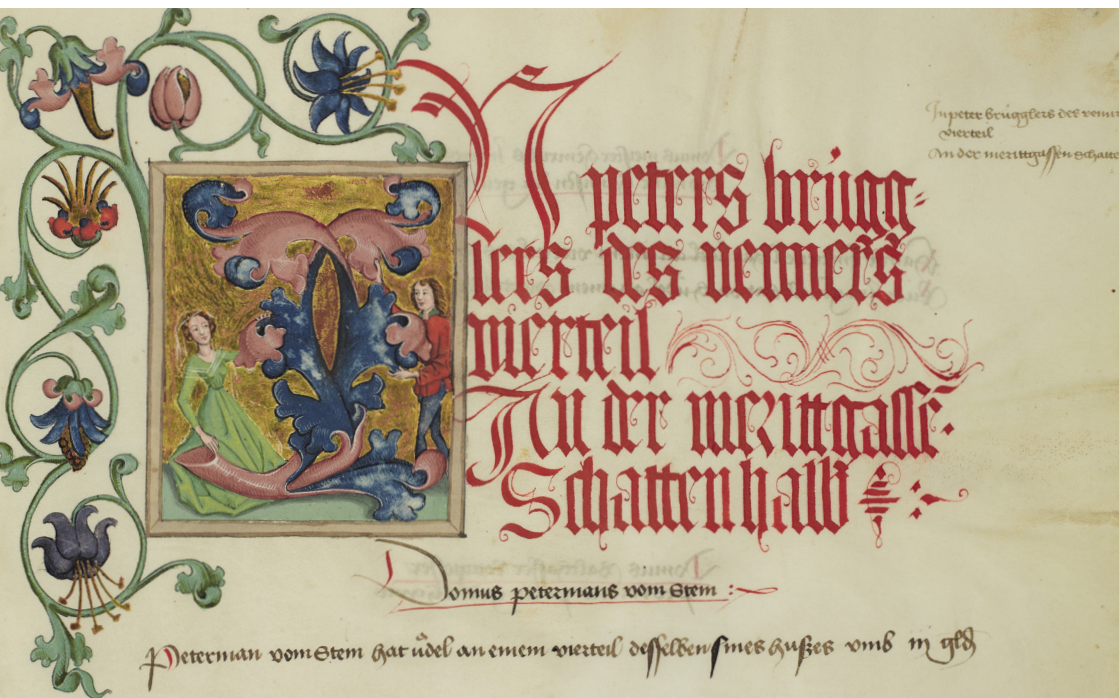 IN peters brügg=
lers des venners
vierteil
An der merittgasse.
Schattenhalb
In peter brügglers des
vierteil
An der merittgassen schatte
Domus petermans vom Stein :~
Peterman vom Stein hat ůdel an einem vierteil desselben sines hußes vmb iij gld